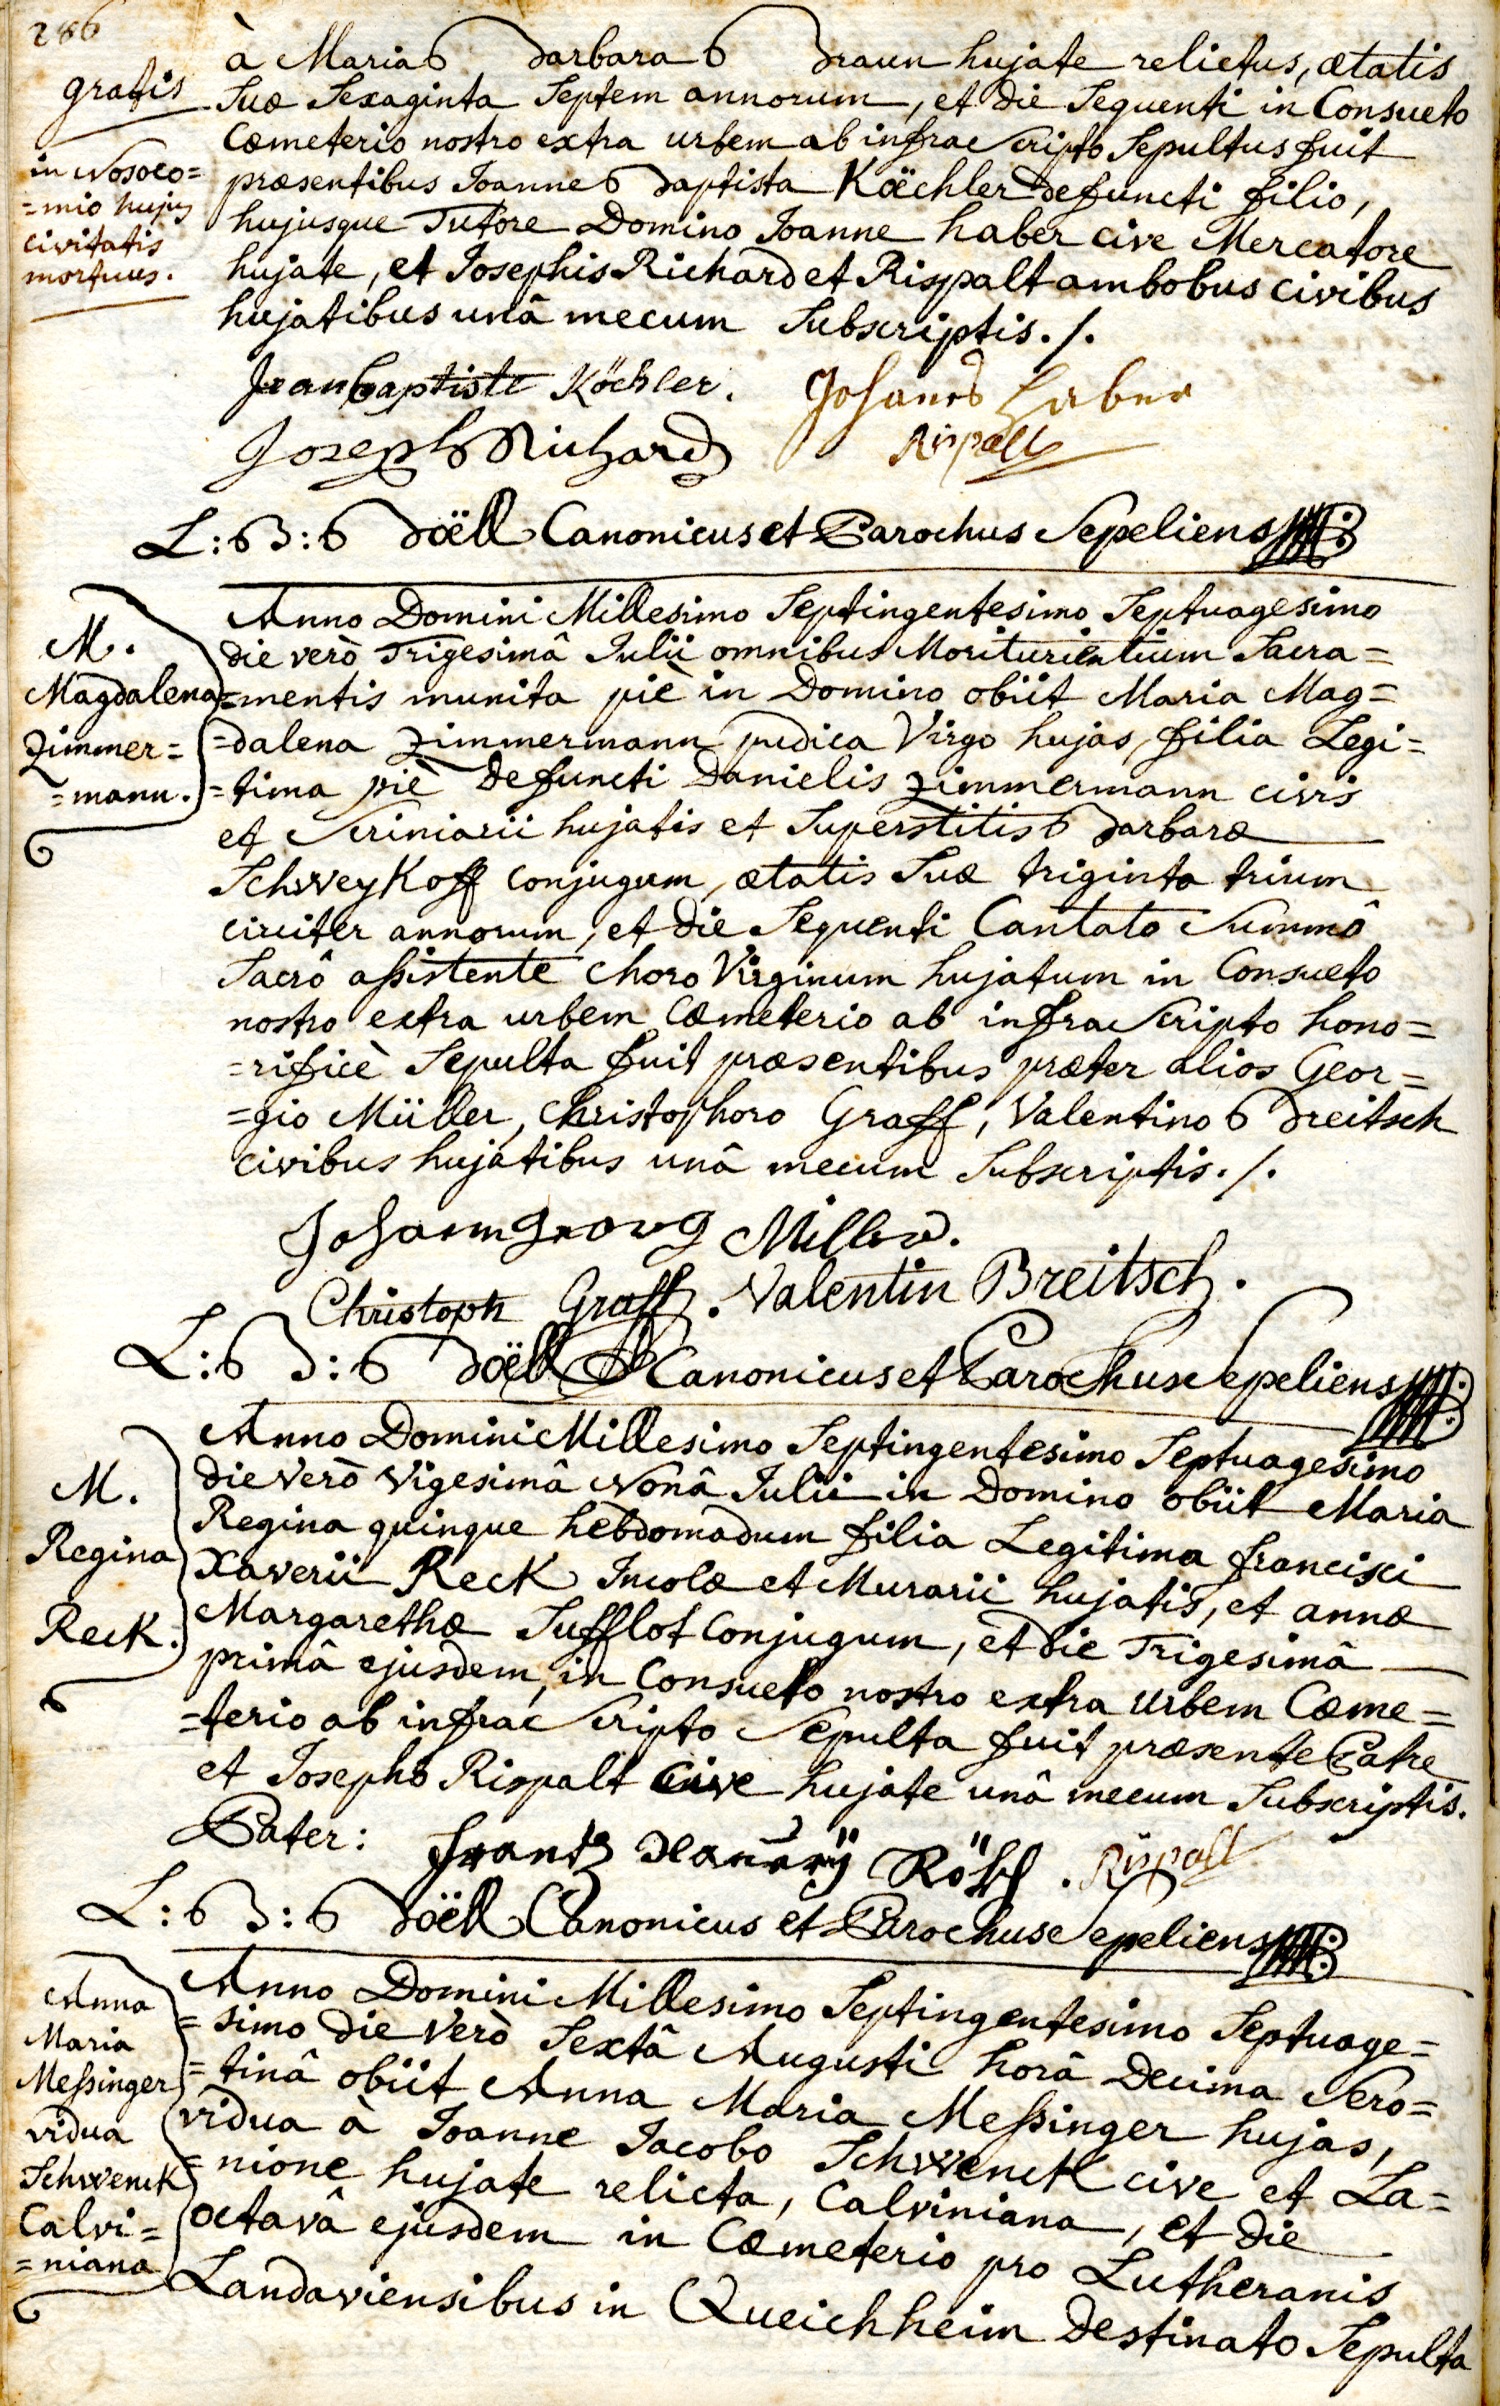 286
gratis
in Nosoco=
=mio hujus
civitatis
mortuus.
à Maria Barbara Braun hujate relictus, ætatis
Suæ Sexaginta Septem annorum, et die Sequenti in Consueto
Cœmeterio nostro extra urbem ab infrascripto Sepultus fuit
præsentibus Joanne Baptista Köechler defuncti filio,
hujusque Tutore Domino Joanne haber cive Mercatore
hujate, et Josephis Richard et Rispalt ambobus civibus
hujatibus unâ mecum Subscriptis./.
Jean baptiste Köchler. Johanes Haber
Joseph Richard Rispalt
L: B: Böell Canonicus et Parochus Sepeliens
M.
Magdalena
Zimmer=
=mann.
Anno Domini Millesimo Septingentesimo Septuagesimo
die verò Trigesimâ Julii omnibus Moriturientium Sacra=
=mentis munita piè in Domino obiit Maria Mag=
=dalena Zimmermann pudica Virgo hujas, filia Legi=
=tima piè defuncti Danielis Zimmermann civis
et Scriniarii hujatis et Superstitis Barbaræ
Schweykoff conjugum, ætatis Suæ triginta trium
circiter annorum, et die Sequenti Cantato Summô
Sacrô assistente choro Virginum hujatum in Consueto
nostro extra urbem Cœmeterio ab infrascripto hono=
=rificè Sepulta fuit præsentibus præter alios Geor=
=gio Müller, Christophoro Graff, Valentino Breitsch
civibus hujatibus unâ mecum Subscriptis./.
Johann Georg Miller.
Christoph Graff. Valentin Breitsch.
L: B: Böell Canonicus et Parochus Sepeliens
M.
Regina
Reck.
Anno Domini Millesimo Septingentesimo Septuagesimo
die verò Vigesimâ Nonâ Julii in Domino obiit Maria
Regina quinque hebdomadum filia Legitima francisci
Xaverii Reck Incolæ et Murarii hujatis, et annæ
Margarethæ Sufflot Conjugum, et die Trigesimâ
primâ ejusdem, in Consueto nostro extra urbem Cœme=
=terio ab infrascripto Sepulta fuit præsente Patre
et Josepho Rispalt cive hujate unâ mecum Subscriptis.
Pater: frantz Rispalt
L: B: Böell Canonicus et Parochus Sepeliens
Anna
Maria
Messinger
vidua
Schwenck
Calvi=
=niana
Anno Domini Millesimo Septingentesimo Septuage=
=simo die verò Sextâ Augusti horâ Decima Sero=
=tinâ obiit Anna Maria Messinger hujas,
vidua à Joanne Jacobo Schwenck cive et La=
=nione hujate relicta, Calviniana, et die
octavâ ejusdem in Cœmeterio pro Lutheranis
Landaviensibus in Queichheim Destinato Sepulta